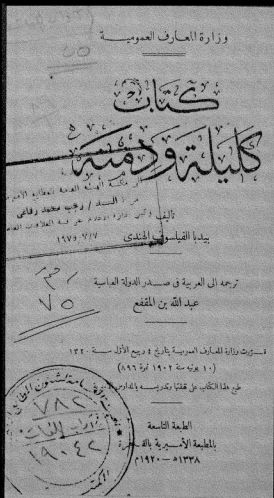 وزارة المعارف العمومية
٥٥
كتاب
كليلة ودمنة
السيد / رجب محمد رفاعى
١٩٧٥/٧/٧
تأليف
بيدبا الفيلسوف الهندى
ترجمه الى العربية فى صدر الدولة العباسية
عبد الله بن المقفع
٧٥
قررت وزارة المعارف العمومية بتاريخ ٤ ربيع الأول سنة ١٣٢٠
(١٠ يونيه سنة ١٩٠٢ نمرة ٨٩٦)
طبع هذا الكتاب على نفقتها وتدريسه بالمدارس
٧٨٢
١٩٠٤٢
الطبعة التاسعة
بالمطبعة الأميرية بالقاهرة
١٣٣٨هـ — ١٩٢٠م